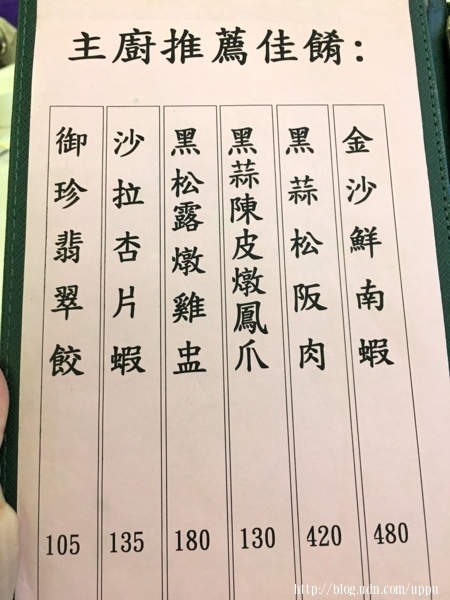 主廚推薦佳餚:
金沙鮮南蝦 480
黑蒜松阪肉 420
黑蒜陳皮燉鳳爪 130
黑松露燉雞盅 180
沙拉杏片蝦 135
御珍翡翠餃 105
http://blog.udn.com/uppu